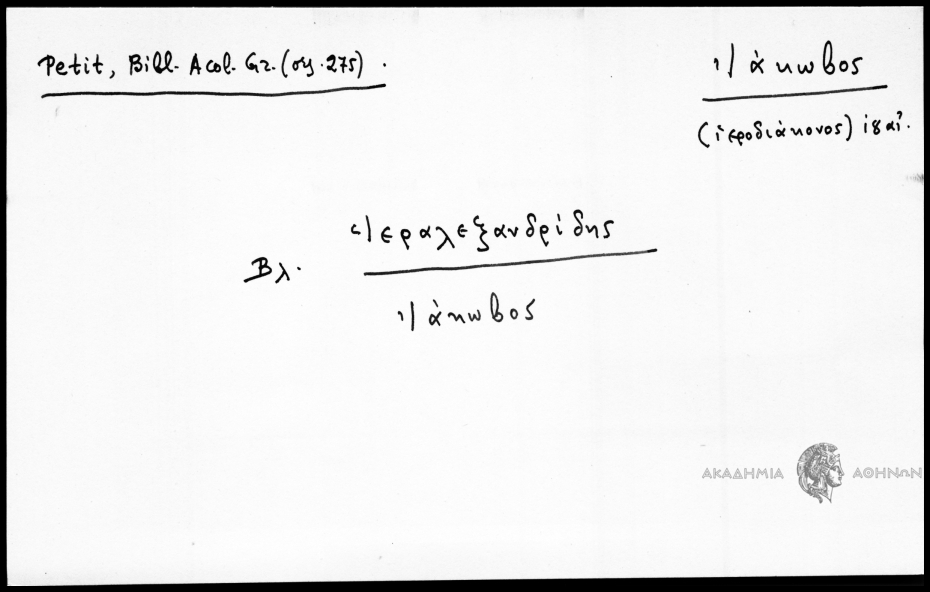 Petit, Bibl. Acol. Gr. (σγ. 275).
Ἰάκωβος
(ἱεροδιάκονος) ιθ αἰ.
Βλ. Ἱεραλεξανδρίδης
Ἰάκωβος
ΑΚΑΔΗΜΙΑ ΑΘΗΝΩΝ